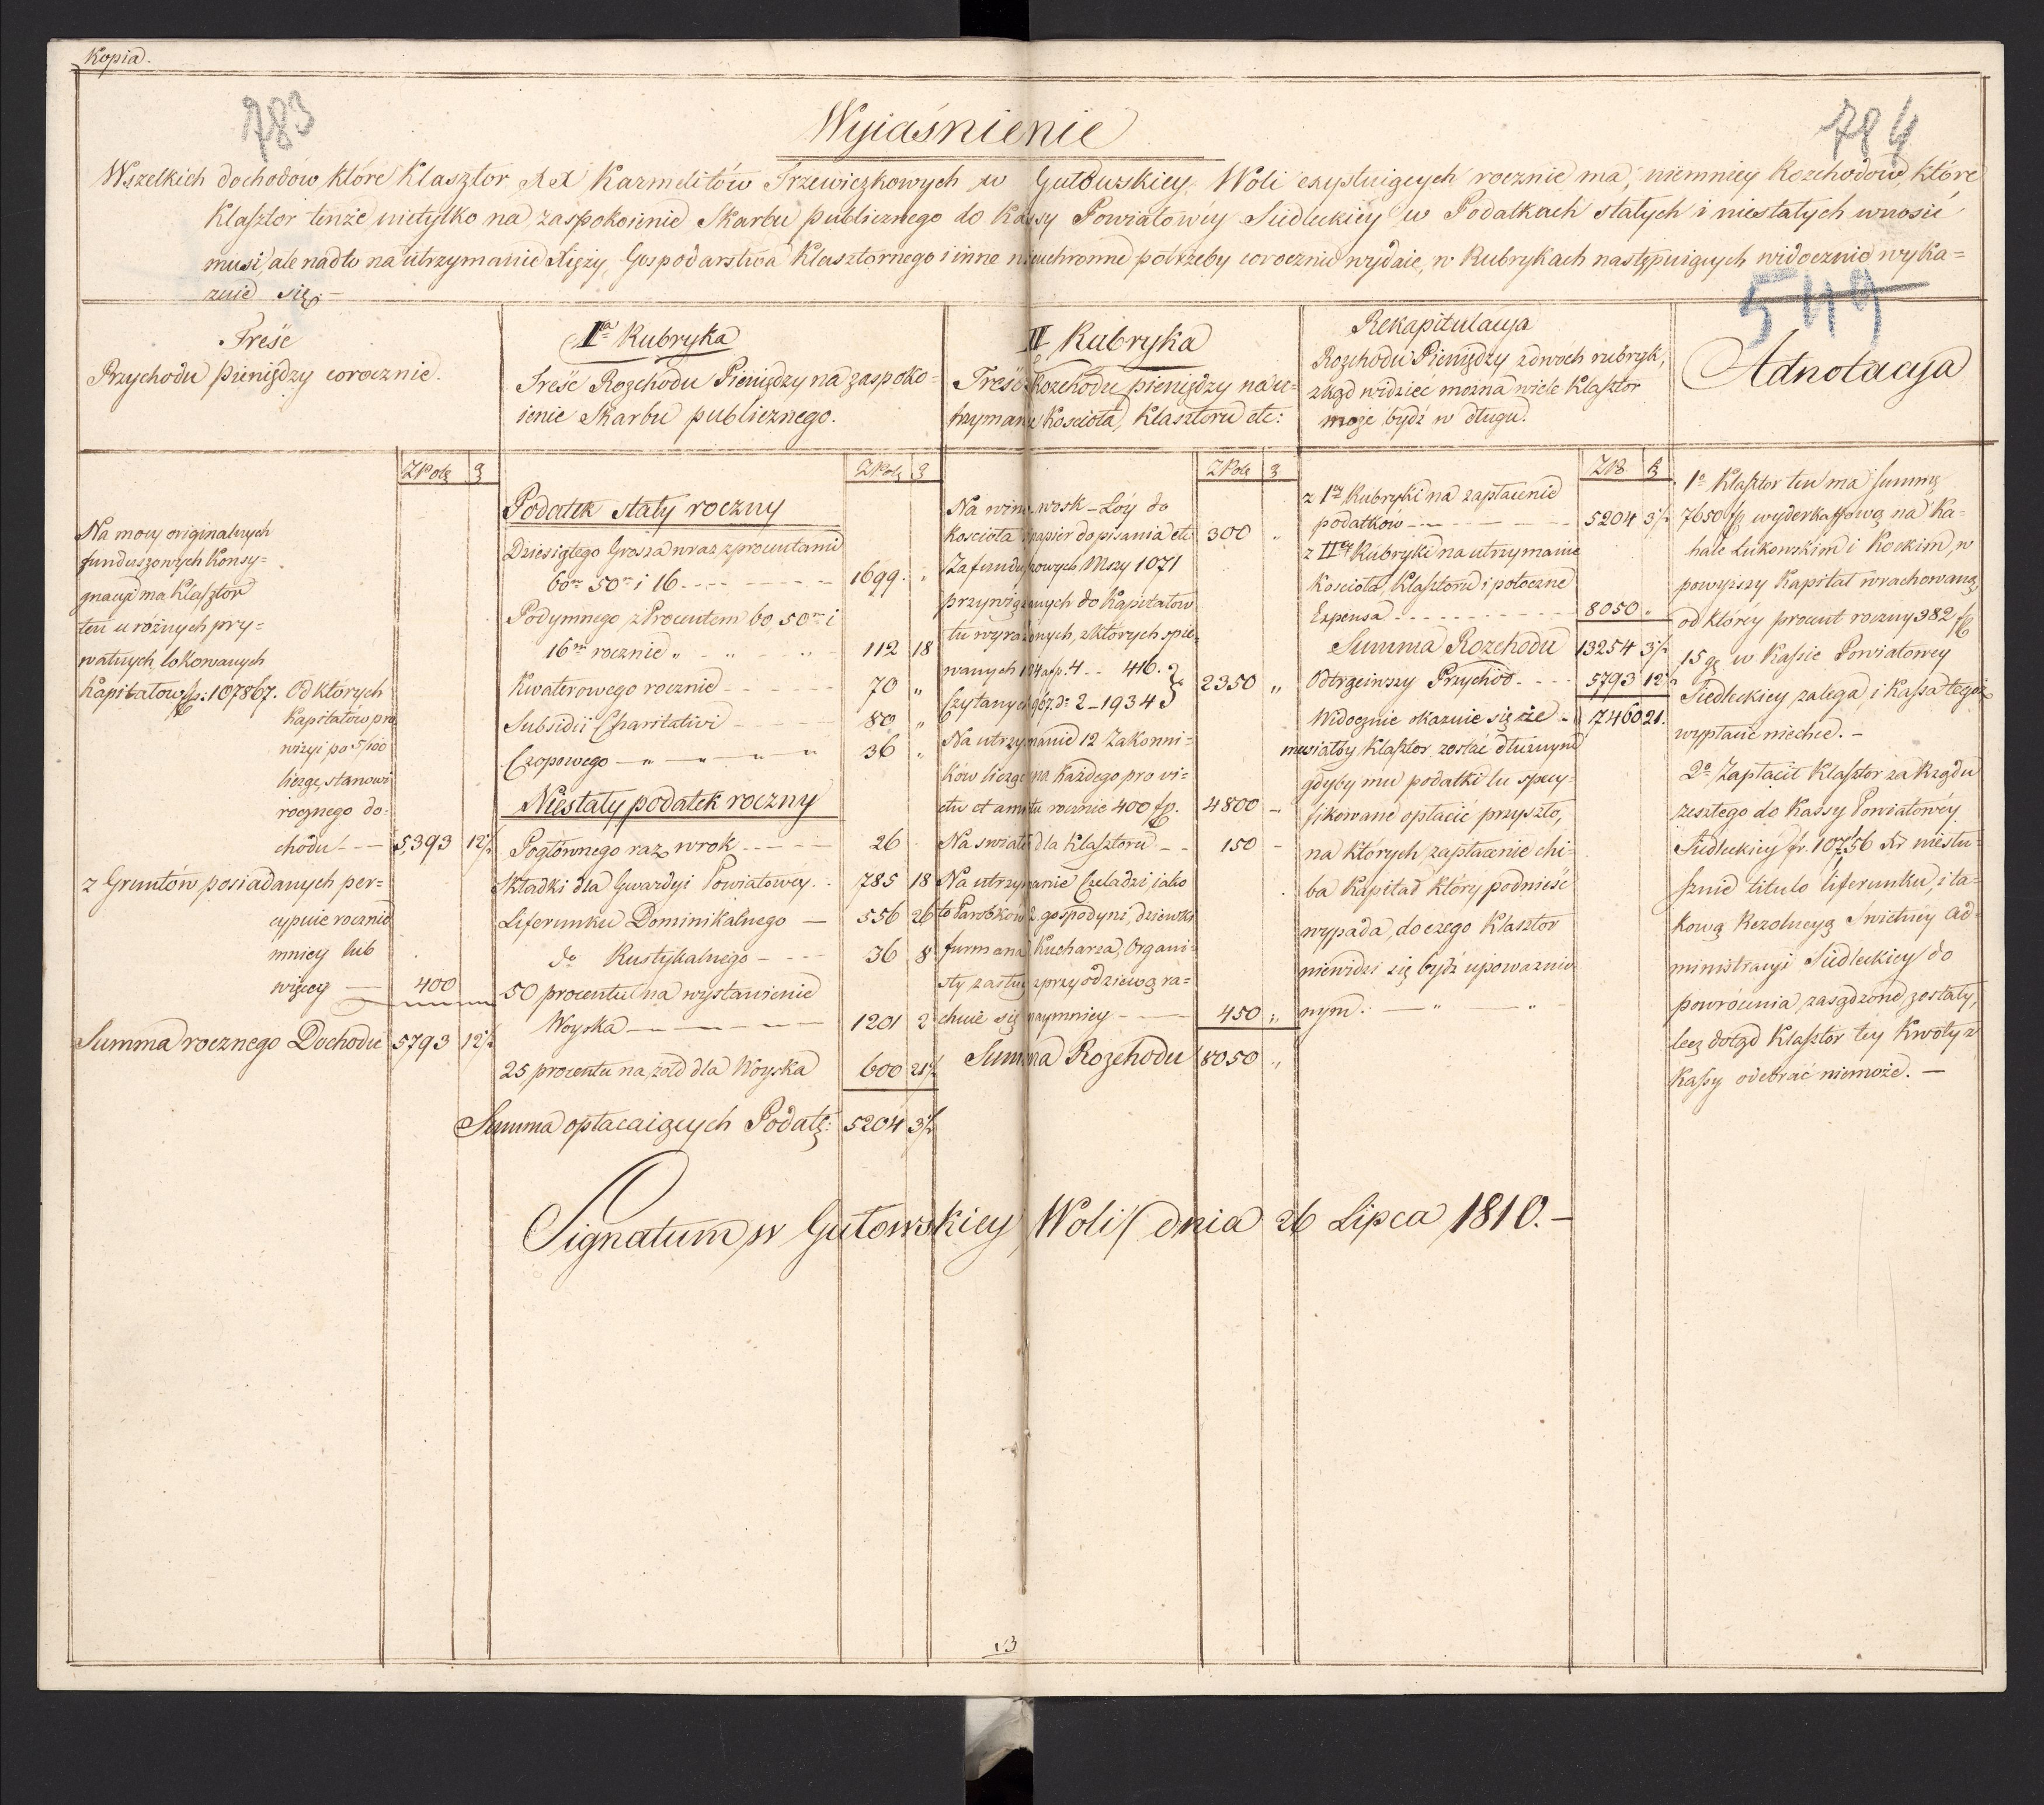 Kopia.
783
784
Wyiaśnienie
Wszelkich dochodów, które Klasztor XX Karmelitów Trzewiczkowych w Gutowskiey Woli exystuiących rocznie ma, niemniey Rozchodów, które
Klasztor tenże nietylko na zaspokoienie Skarbu publicznego do Kassy Powiatowéy Siedleckiey w Podatkach stałych i niestałych wnosić
musi, ale nadto na utrzymanie Xięży, Gospodarstwa Klasztornego i inne nieuchronne potrzeby corocznie wydaie, w Rubrykach następuiących widocznie wyka=
zuie się. –
549
Treść
Przychodu pieniędzy corocznie.
ZPolę g
Na mocy originalnych
funduszowych Konsy=
gnacyi ma Klasztor
ten u różnych pry=
watnych lokowanych
Kapitałow fp: 107867. Od których
Kapitałów pro
wizyi po 5/100
licząc, stanowi
rocznego do=
chodu – – – 5,393 12½
z Gruntów posiadanych per=
cypuie rocznie
mniey lub
więcey — 400
Summa rocznego Dochodu 5793 12½
Iª Rubryka
Treść Rozchodu Pieniędzy na zaspoko=
ienie Skarbu publicznego.
ZPolę g
Podatek stały roczny
Dziesiątego Grosza wraz z procentami
60m 50m i 16 - - - - - 1699 . "
Podymnego z Procentem 60 50m i
16m rocznie " - " - " - 112 18
Kwaterowego rocznie - - - - 70 "
Subsidii Charitativi - - - - 80 "
Czopowego – " – " – " 36 "
Niestały podatek roczny
Pogłównego raz w rok - - - - 26
Składki dla Gwardyi Powiatowey . 785 18
Liferunku Dominikalnego — 556 26
do Rustykalnego - - - - 36 8
50 procentu na wystawienie
Woyska — – – – 1201 2
25 procentu na żołd dla Woyska 600 21½
Summa opłacaiących Podatk: 5204 3½
II Rubryka
Treść Rozchodu pieniędzy na u=
trzymanie Kościoła, Klasztoru etc:
ZPolę g
Na wino, wosk – Łóy do
Kościoła i papier do pisania etc 300 "
Za funduszowych Mszy 1071
przywiązanych do Kapitałow
tu wyrażonych, z których spie=
wanych 104 a fp. 4 - - 416.
Czytanych 967. do 2 – 1934 } 2350 "
Na utrzymanie 12 Zakonni=
ków licząc na każdego pro vi=
ctu et amictu rocznie 400 fp. 4800 –
Na swiatło dla Klasztoru – – 150 –
Na utrzymanie Czeladzi, iako
to Parobków 2. gospodyni, dziewki
furmana, Kucharza, Organi=
sty zasług z przyodziewą ra=
chuie się naymniey – – – 450 "
Summa Rozchodu 8050 "
Rekapitulacya
Rozchodu Pieniędzy z dwóch rubryk,
zkąd widzieć można wiele Klasztor
może bydź w długu.
ZP. g
z 1ey Rubryki na zapłacenie
podatków – – – – – 5204 3½
z IIey Rubryki na utrzymanie
Kościoła, Klasztoru i potoczne
Expensa - - - - - - 8050 "
Summa Rozchodu 13254 3½
Odtrąciwszy Przychod - - - 5793 12½
Widocznie okazuie się że – 7460 21.
musiałby Klasztor zostać dłużnym
gdyby mu podatki tu specy=
fikowane opłacić przyszło,
na których zapłacenie chi=
ba Kapitał który podnieść
wypada, do czego Klasztor
niewidzi się bydź upoważnio
nym. — " — "
Adnotacya
1o Klasztor ten ma summę
7650 fp. wyderkaffową na Ka=
hale Łukowskim i Kockim, w
powyższy Kapitał wrachowaną,
od którey procent roczny 382 fp
15 gr w Kassie Powiatowey
Siedleckiey zalega, i Kassa tegoż
wypłacić niechce. –
2o Zapłacił Klasztor za Rządu
zeszłego do Kassy Powiatowéy
Siedleckiey fr. 107,,56 Xr niesłu=
sznie titulo liferunku, i ta=
kową Rezolucyą Świetney Ad=
ministracyi Siedleckiey do
powrócenia zasądzone zostały,
lecz dotąd Klasztor tey Kwoty z
Kassy odebrać niemoże. —
Signatum w Gutowskiey Woli dnia 26 Lipca 1810. –
13